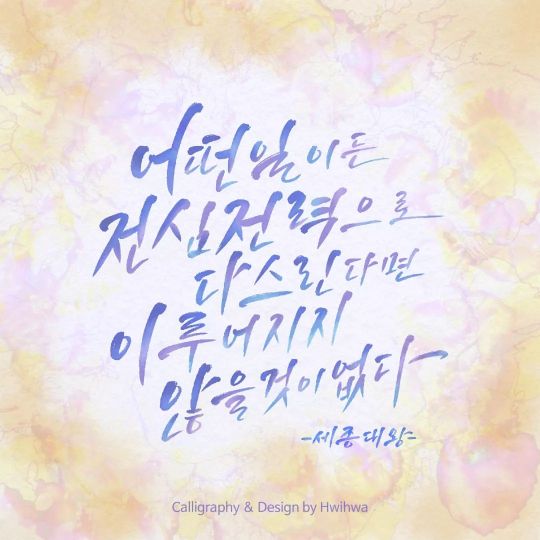 어떤일이든
전심전력으로
다스린다면
이루어지지
않을것이없다
-세종대왕-
Calligraphy & Design by Hwihwa